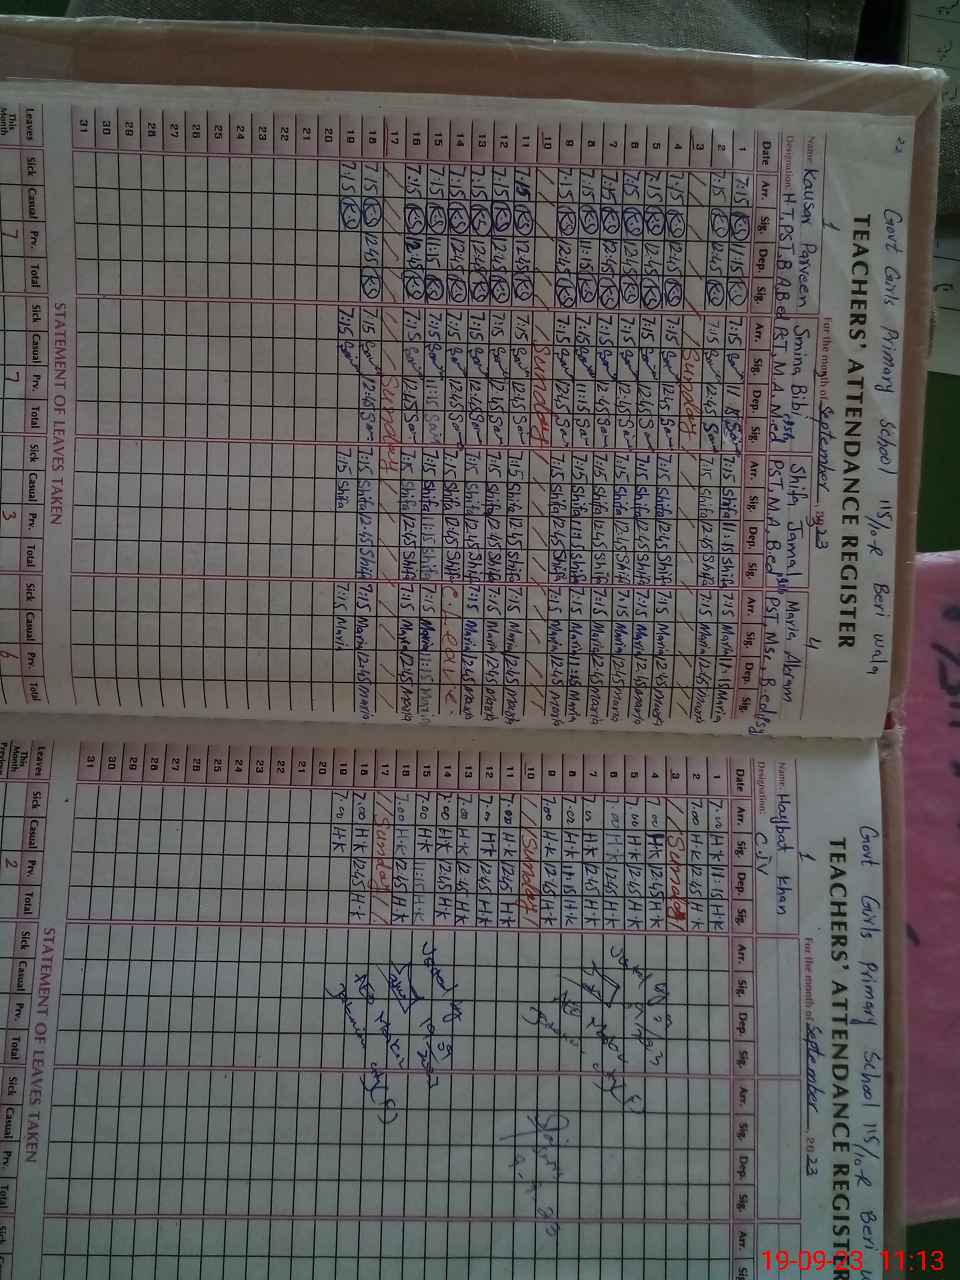 22
Govt Girls Primary School 115/10-R Beri wala
TEACHERS' ATTENDANCE REGISTER
For the month of September, 2023
1 4
Name: Kausar Parveen Smina Bibi Shifa Jamal Maria Akram
Designation: HT, PST, B.A, B.Ed PST, M.A, M.ed PST, M.A, B.ed PST, Msc, B.ed
Date Arr. Sig. Dep. Sig. Arr. Sig. Dep. Sig. Arr. Sig. Dep. Sig. Arr. Sig. Dep. Sig.
1 7:15 KS 11:15 KS 7:15 11:15 7:15 Shifa 11:15 Shifa 7:15 Maria 11:15 Maria
2 7:15 KS 12:45 KS 7:15 12:45 7:15 Shifa 12:45 Shifa 7:15 Maria 12:45 Maria
3 Sunday
4 7:15 KS 12:45 KS 7:15 12:45 7:15 Shifa 12:45 Shifa 7:15 Maria 12:45 Maria
5 7:15 KS 12:45 KS 7:15 12:45 7:15 Shifa 12:45 Shifa 7:15 Maria 12:45 Maria
6 7:15 KS 12:45 KS 7:15 12:45 7:15 Shifa 12:45 Shifa 7:15 Maria 12:45 Maria
7 7:15 KS 12:45 KS 7:15 12:45 7:15 Shifa 12:45 Shifa 7:15 Maria 12:45 Maria
8 7:15 KS 11:15 KS 7:15 11:15 7:15 Shifa 11:15 Shifa 7:15 Maria 11:15 Maria
9 7:15 KS 12:45 KS 7:15 12:45 7:15 Shifa 12:45 Shifa 7:15 Maria 12:45 Maria
10 Sunday
11 7:15 KS 12:45 KS 7:15 12:45 7:15 Shifa 12:45 Shifa 7:15 Maria 12:45 Maria
12 7:15 KS 12:45 KS 7:15 12:45 7:15 Shifa 12:45 Shifa 7:15 Maria 12:45 Maria
13 7:15 KS 12:45 KS 7:15 12:45 7:15 Shifa 12:45 Shifa 7:15 Maria 12:45 Maria
14 7:15 KS 12:45 KS 7:15 12:45 7:15 Shifa 12:45 Shifa C.Leave.
15 7:15 KS 11:15 KS 7:15 11:15 7:15 Shifa 11:15 Shifa 7:15 Maria 11:15 Maria
16 7:15 KS 12:45 KS 7:15 12:45 7:15 Shifa 12:45 Shifa 7:15 Maria 12:45 Maria
17 Sunday
18 7:15 KS 12:45 KS 7:15 12:45 7:15 Shifa 12:45 Shifa 7:15 Maria 12:45 Maria
19 7:15 KS 7:15 7:15 Shifa 7:15 Maria
20
21
22
23
24
25
26
27
28
29
30
31
STATEMENT OF LEAVES TAKEN
Leaves Sick Casual Prv. Total Sick Casual Prv. Total Sick Casual Prv. Total Sick Casual Prv. Total
This Month 7 7 3 6
Govt Girls Primary School 115/10-R Beri
TEACHERS' ATTENDANCE REGISTER
For the month of September, 2023
1
Name: Haybat Khan
Designation: C.IV
Date Arr. Sig. Dep. Sig. Arr. Sig. Dep. Sig. Arr. Sig. Dep. Sig. Arr. Sig.
1 7:00 H·K 11:15 H·K
2 7:00 H·K 12:45 H·K
3 Sunday
4 7:00 H·K 12:45 H·K
5 7:00 H·K 12:45 H·K
6 7:00 H·K 12:45 H·K
7 7:00 H·K 12:45 H·K
8 7:00 H·K 11:15 H·K
9 7:00 H·K 12:45 H·K
10 Sunday
11 7:00 H·K 12:45 H·K
12 7:00 H·K 12:45 H·K
13 7:00 H·K 12:45 H·K
14 7:00 H·K 12:45 H·K
15 7:00 H·K 11:15 H·K
16 7:00 H·K 12:45 H·K
17 Sunday
18 7:00 H·K 12:45 H·K
19 7:00 H·K
20
21
22
23
24
25
26
27
28
29
30
31
STATEMENT OF LEAVES TAKEN
Leaves Sick Casual Prv. Total Sick Casual Prv. Total Sick Casual Prv. Total Sick
This Month 2
Previous
19-09-23 11:13